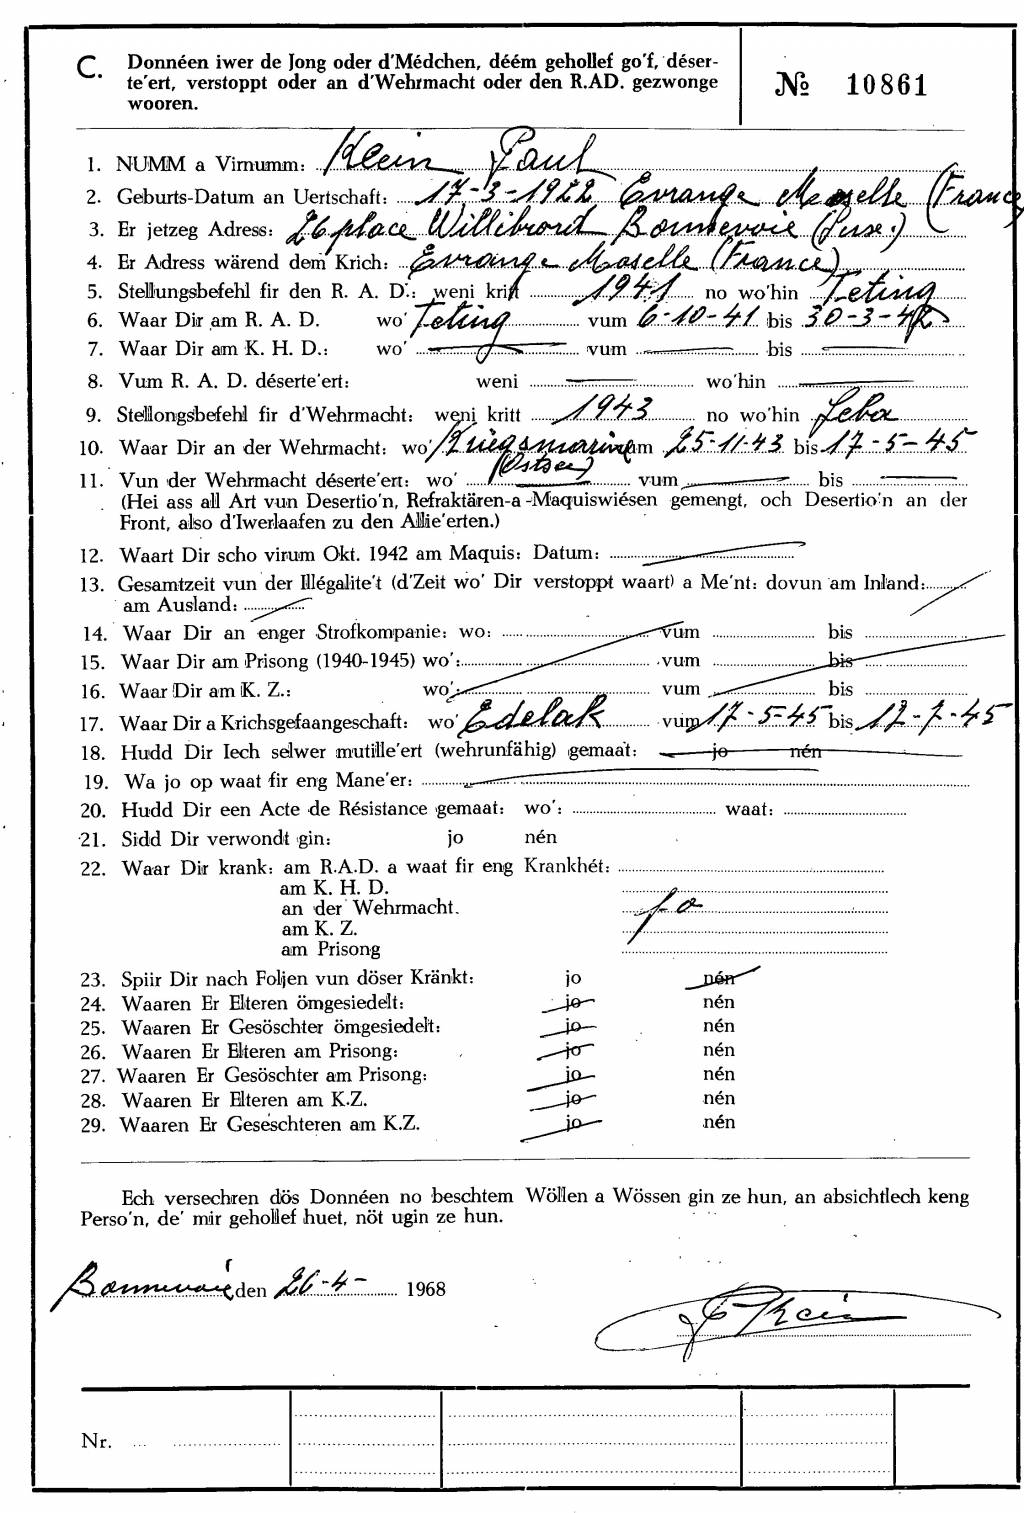 C. Donnéen iwer de Jong oder d'Médchen, déém gehollef go'f, déser-
te'ert, verstoppt oder an d'Wehrmacht oder den R.AD. gezwonge
wooren.
№ 10861
1. NUMM a Virnumm: Klein Paul
2. Geburts-Datum an Uertschaft: 17-3-1922 Evrange Moselle (France)
3. Er jetzeg Adress: 26 place Willibrord Bonnevoie (Luxe.)
4. Er Adress wärend dem Krich: Evrange Moselle (France)
5. Stellungsbefehl fir den R. A. D.: weni kritt 1941 no wo'hin Teting
6. Waar Dir am R. A. D. wo' Teting vum 6-10-41 bis 30-3-42
7. Waar Dir am K. H. D.: wo' vum bis
8. Vum R. A. D. déserte'ert: weni wo'hin
9. Stellongsbefehl fir d'Wehrmacht: weni kritt 1943 no wo'hin Leba
10. Waar Dir an der Wehrmacht: wo' Kriegsmarine vum 25-11-43 bis 17-5-45
(Ostsee)
11. Vun der Wehrmacht déserte'ert: wo' vum bis
(Hei ass all Art vun Desertio'n, Refraktären-a-Maquiswiésen gemengt, och Desertio'n an der
Front, also d'Iwerlaafen zu den Allie'erten.)
12. Waart Dir scho virum Okt. 1942 am Maquis: Datum:
13. Gesamtzeit vun der Illégalite't (d'Zeit wo' Dir verstoppt waart) a Me'nt: dovun am Inland:
am Ausland:
14. Waar Dir an enger Strofkompanie: wo: vum bis
15. Waar Dir am Prisong (1940-1945) wo': vum bis
16. Waar Dir am K. Z.: wo': vum bis
17. Waar Dir a Krichsgefaangeschaft: wo' Edelak vum 17-5-45 bis 12-7-45
18. Hudd Dir Iech selwer mutille'ert (wehrunfähig) gemaat: jo nén
19. Wa jo op waat fir eng Mane'er:
20. Hudd Dir een Acte de Résistance gemaat: wo': waat:
21. Sidd Dir verwondt gin: jo nén
22. Waar Dir krank: am R.A.D. a waat fir eng Krankhét:
am K. H. D.
an der Wehrmacht. jo
am K. Z.
am Prisong
23. Spiir Dir nach Foljen vun döser Kränkt: jo nén
24. Waaren Er Elteren ömgesiedelt: jo nén
25. Waaren Er Gesöschter ömgesiedelt: jo nén
26. Waaren Er Elteren am Prisong: jo nén
27. Waaren Er Gesöschter am Prisong: jo nén
28. Waaren Er Elteren am K.Z. jo nén
29. Waaren Er Geseschteren am K.Z. jo nén
Ech versechren dös Donnéen no beschtem Wöllen a Wössen gin ze hun, an absichtlech keng
Perso'n, de' mir gehollef huet, nöt ugin ze hun.
Bonnevoie den 26-4- 1968
P Klein
Nr.